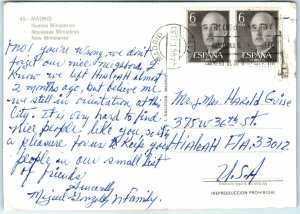 45 - MADRID
Nuevos Ministerios
Nouveaux Ministères
New Ministeries
6 PTAS
ESPAÑA
6 PTAS
ESPAÑA
MADRID
No! you're wrong, we don't
forget our nice neighbors, I
know we left Hialeah almost
2 months ago, but believe me
we still in orientation at the
City. It is very hard to find
nice people like you, so it's
a pleasure for us to keep you
people in our small list
of friends.
Sincerely
Miguel Gonzalez n Family.
Mr & Mrs. Harold Guise
375 W 36th St
Hialeah Fla. 33012
U.S.A
(REPRODUCCION PROHIBIDA)